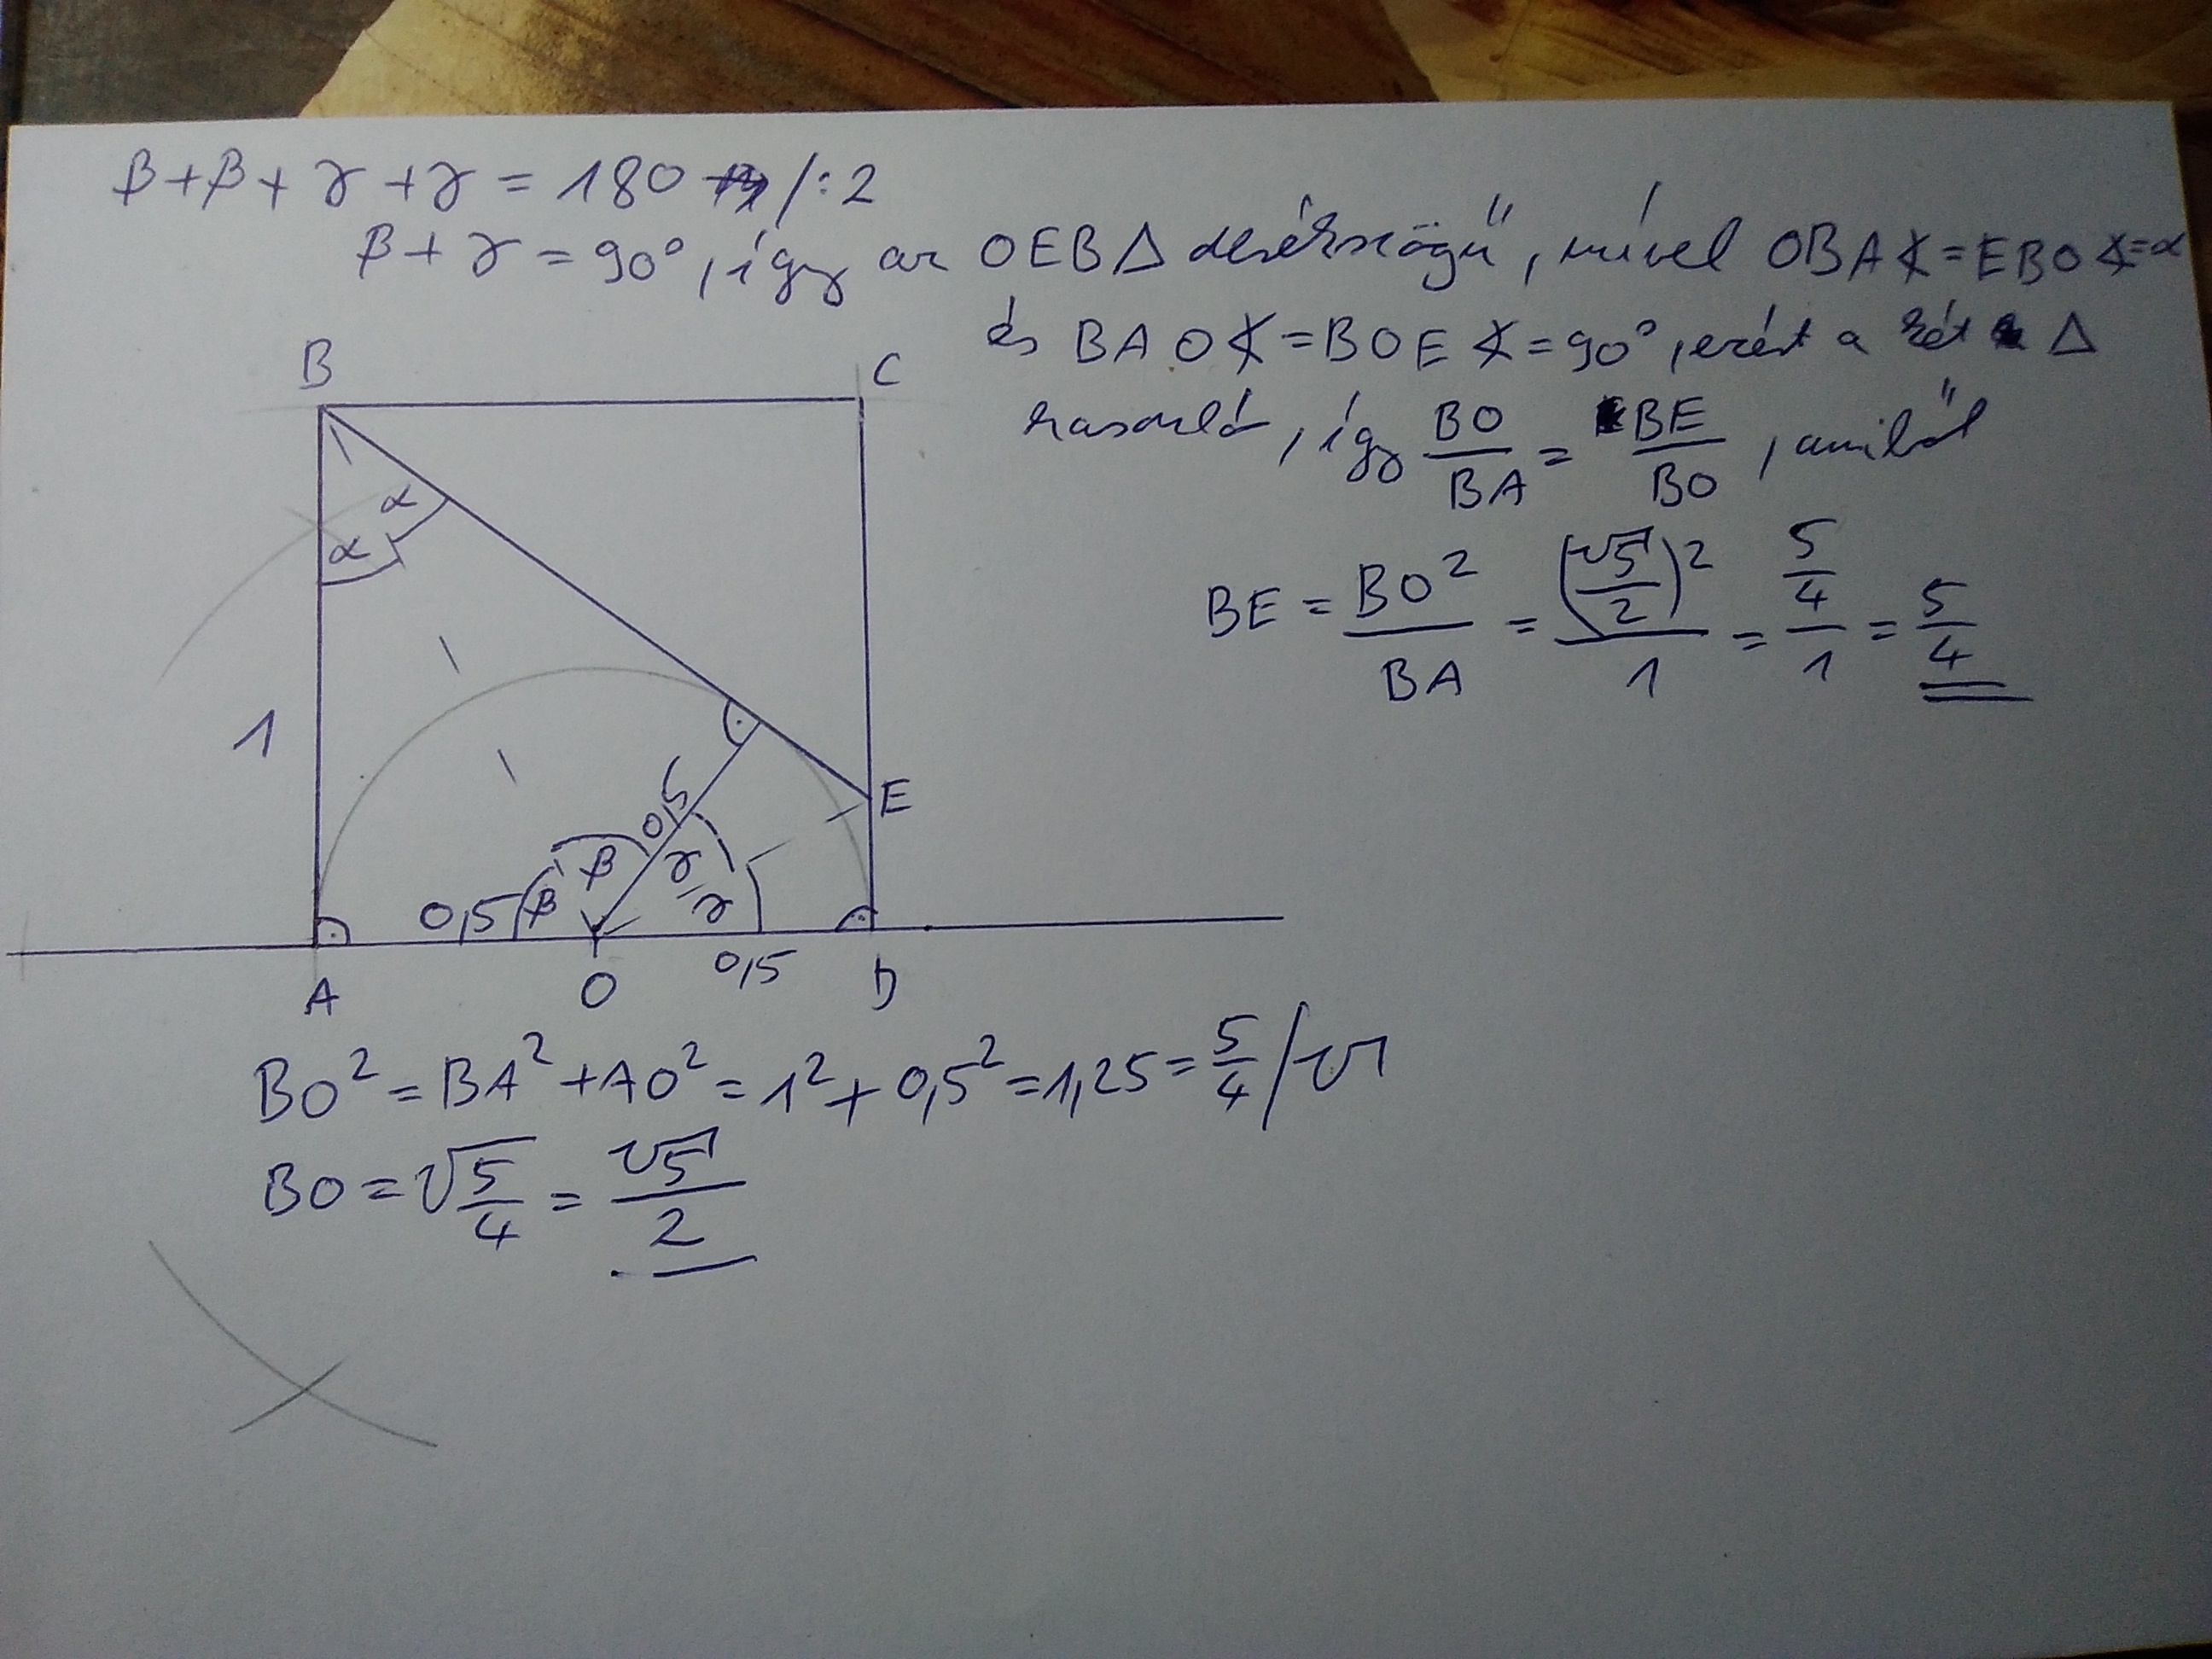 β+β+γ+γ=180 /:2
β+γ=90°, így az OEB△ derékszögű, mivel OBA∢=EBO∢=α
és BAO∢=BOE∢=90°, ezért a két △
hasonló, így BO/BA = BE/BO, amiből
BE = BO²/BA = (√5/2)²/1 = 5/4/1 = 5/4
B
C
α
α
1
0,5
E
β
γ
0,5
β
γ
0,5
A
O
D
BO²=BA²+AO²=1²+0,5²=1,25=5/4 /√
BO=√5/4=√5/2